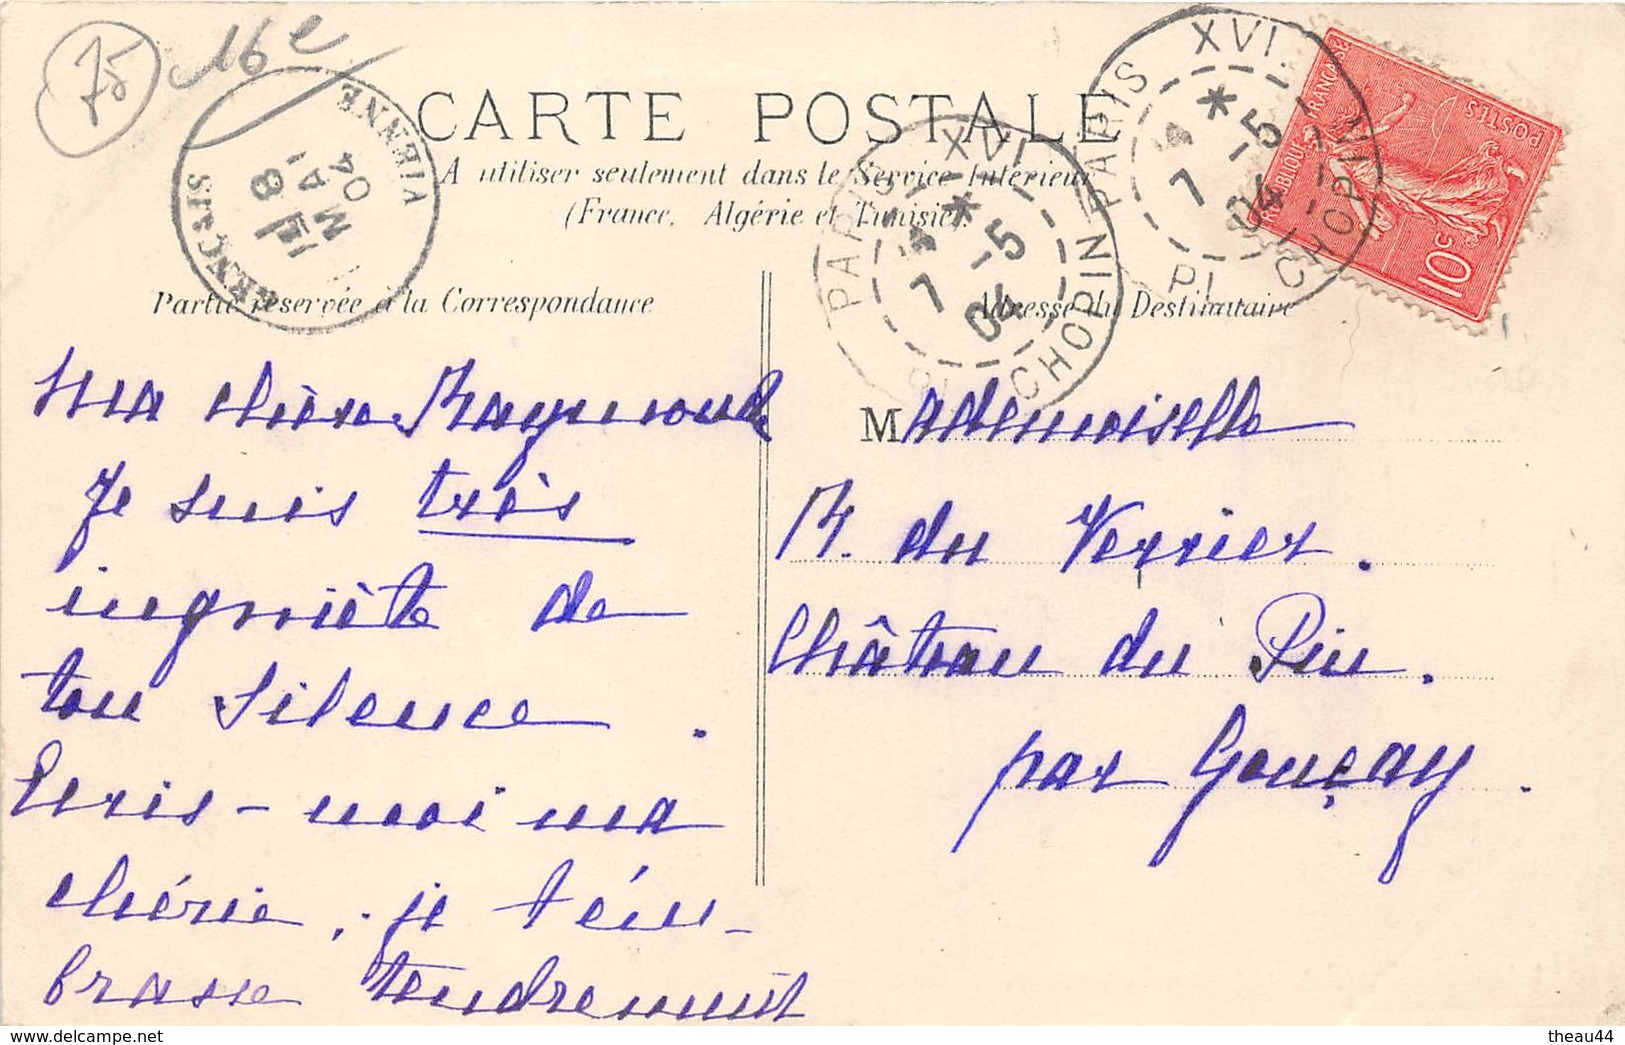 75
16e
CARTE POSTALE
A utiliser seulement dans le Service Intérieur
(France, Algérie et Tunisie).
VIENNE
8
MAI
04
PARIS XVI
7 - 5
04
PL CHOPIN
PARIS XVI
7 - 5
04
PL CHOPIN
RÉPUBLIQUE FRANÇAISE
POSTES
10c
Partie réservée à la Correspondance
Adresse du Destinataire
Ma chère Raymonde
Je suis très
inquiète de
ton silence.
Ecris-moi ma
chérie, je t'em-
brasse tendrement
Mademoiselle
R. du Verrier.
Château du Pin.
par Gençay.
theau44